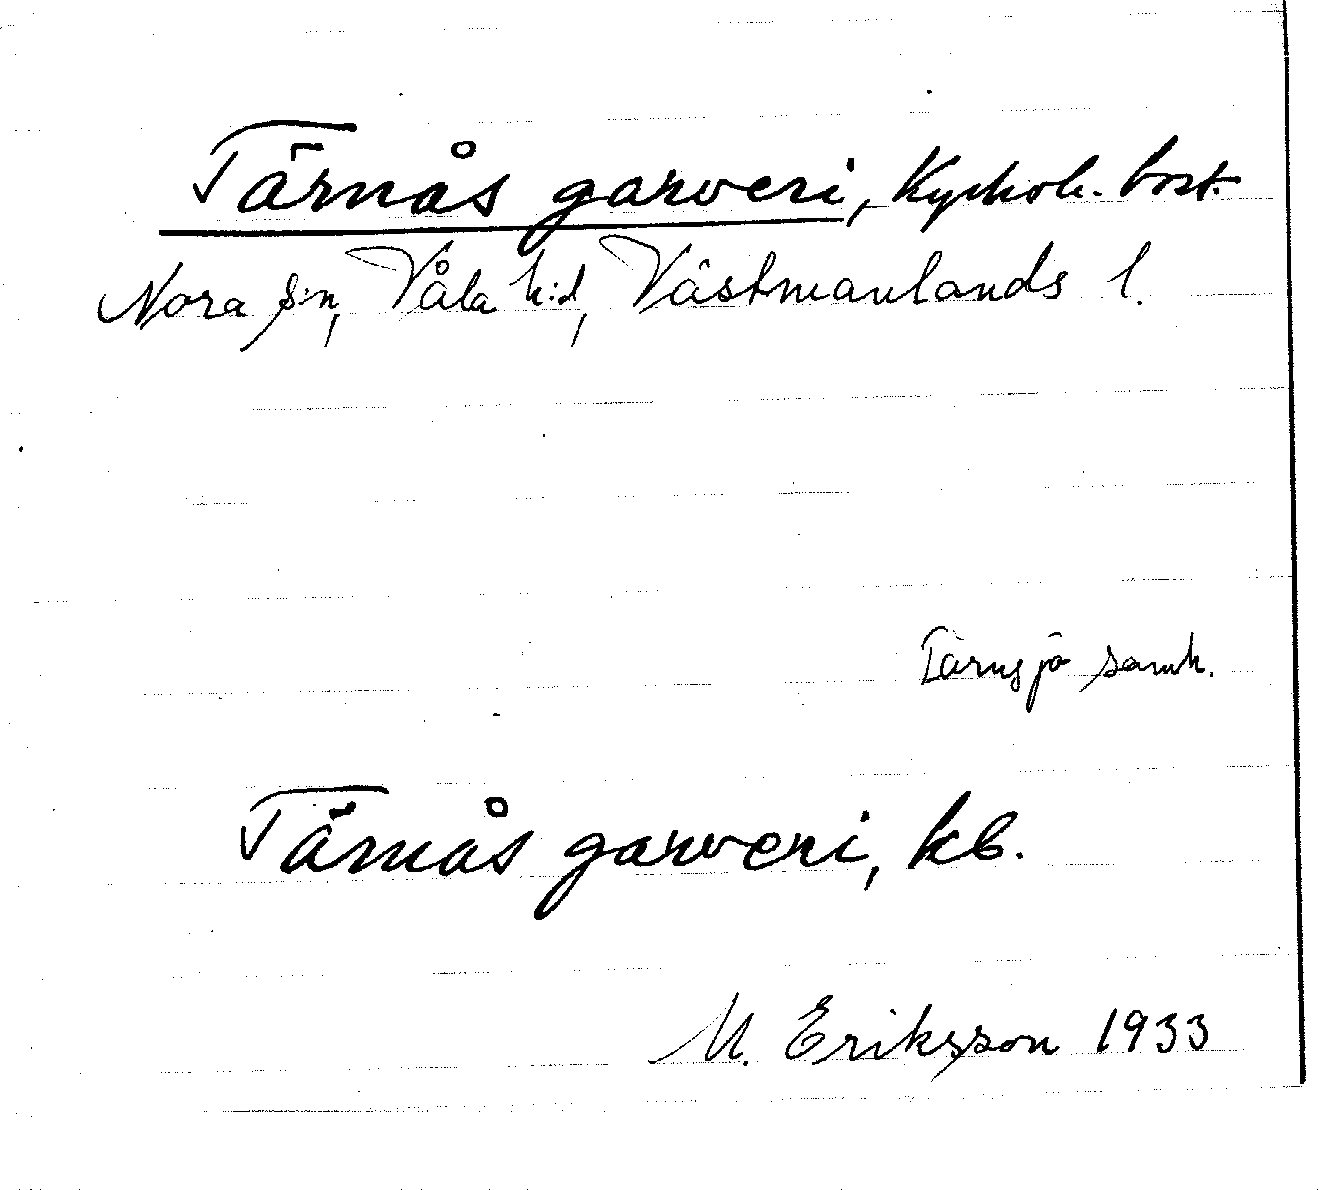 Tärnås garveri, Kyrkoh. bost.
Nora s:n, Våla h:d, Västmanlands l.
Tärnsjö samh.
Tärnås garveri, kb.
M. Eriksson 1933